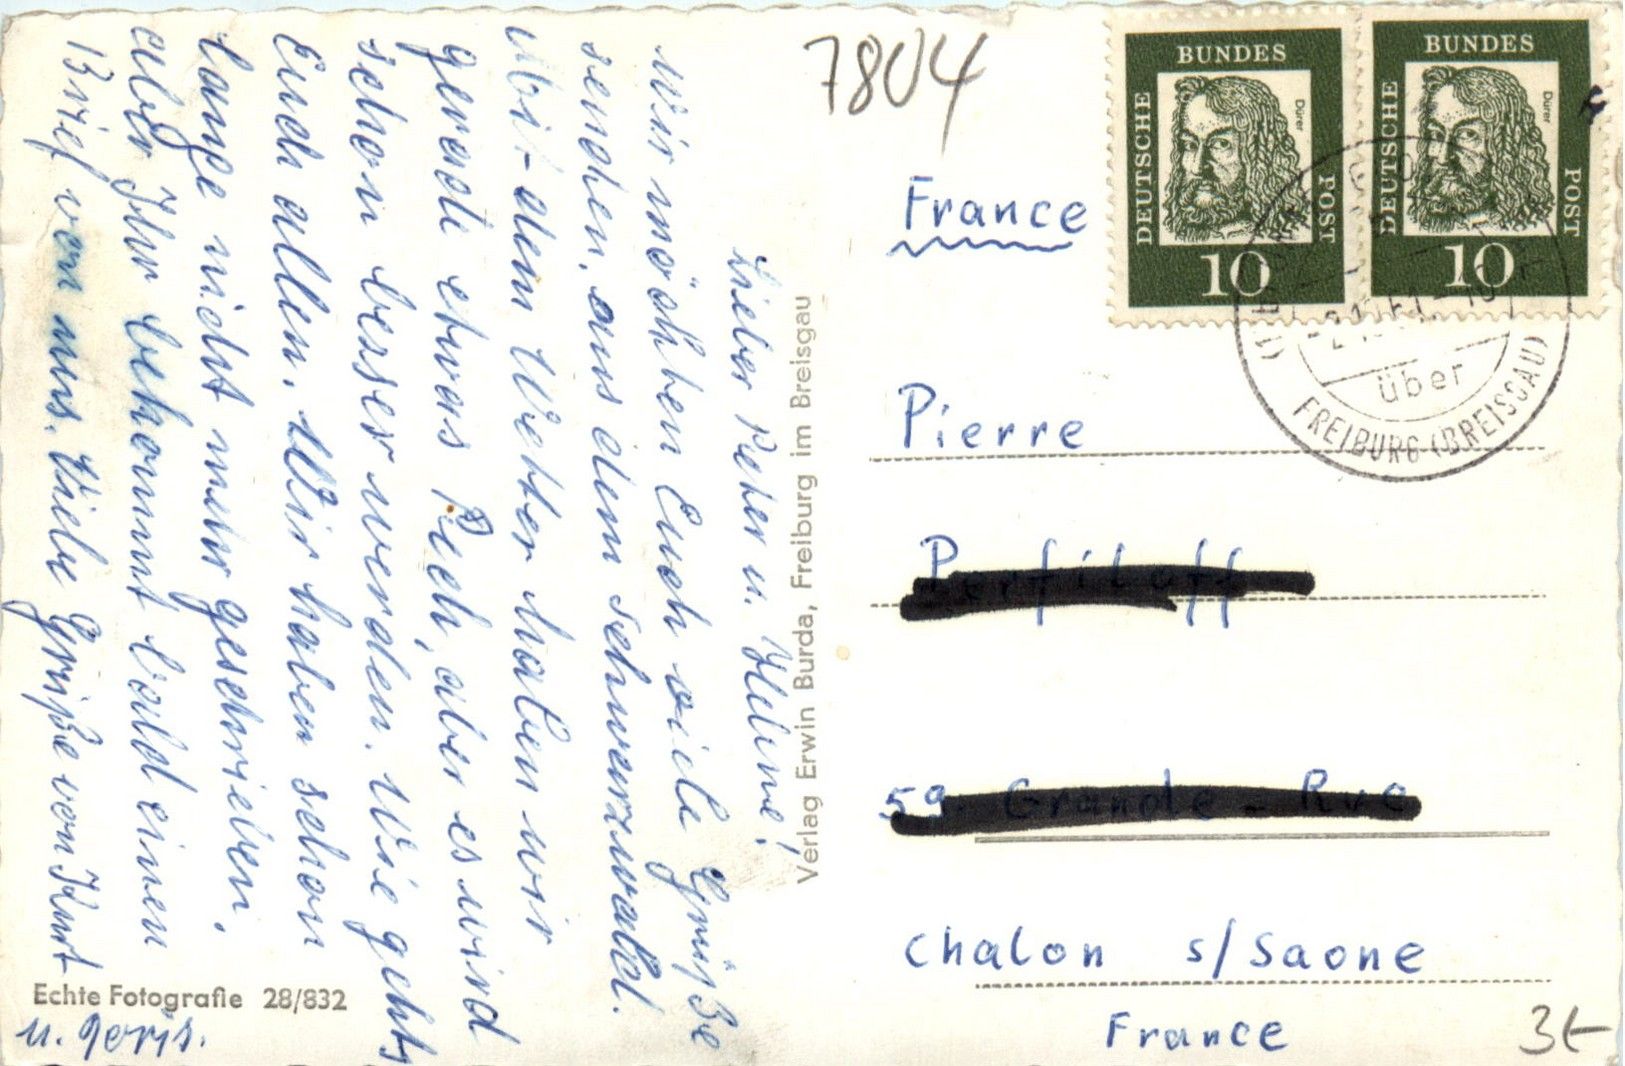 Lieber Peter u. Helene!
Wir möchten Euch viele Grüße
senden, aus dem Schwarzwald.
Mit dem Wetter haben wir
gerade etwas Pech, aber es wird
schon besser werden. Wie gehts
Euch allen. Wir haben schon
lange nicht mehr geschrieben,
aber Ihr bekommt bald einen
Brief von uns. Viele Grüße von Kurt
u. Doris.
Echte Fotografie 28/832
Verlag Erwin Burda, Freiburg im Breisgau
7804
France
BUNDES
DEUTSCHE
POST
Dürer
10
BUNDES
DEUTSCHE
POST
Dürer
10
über
FREIBURG (BREISGAU)
Pierre
59. Grande-Rue
Chalon s/Saone
France
3€